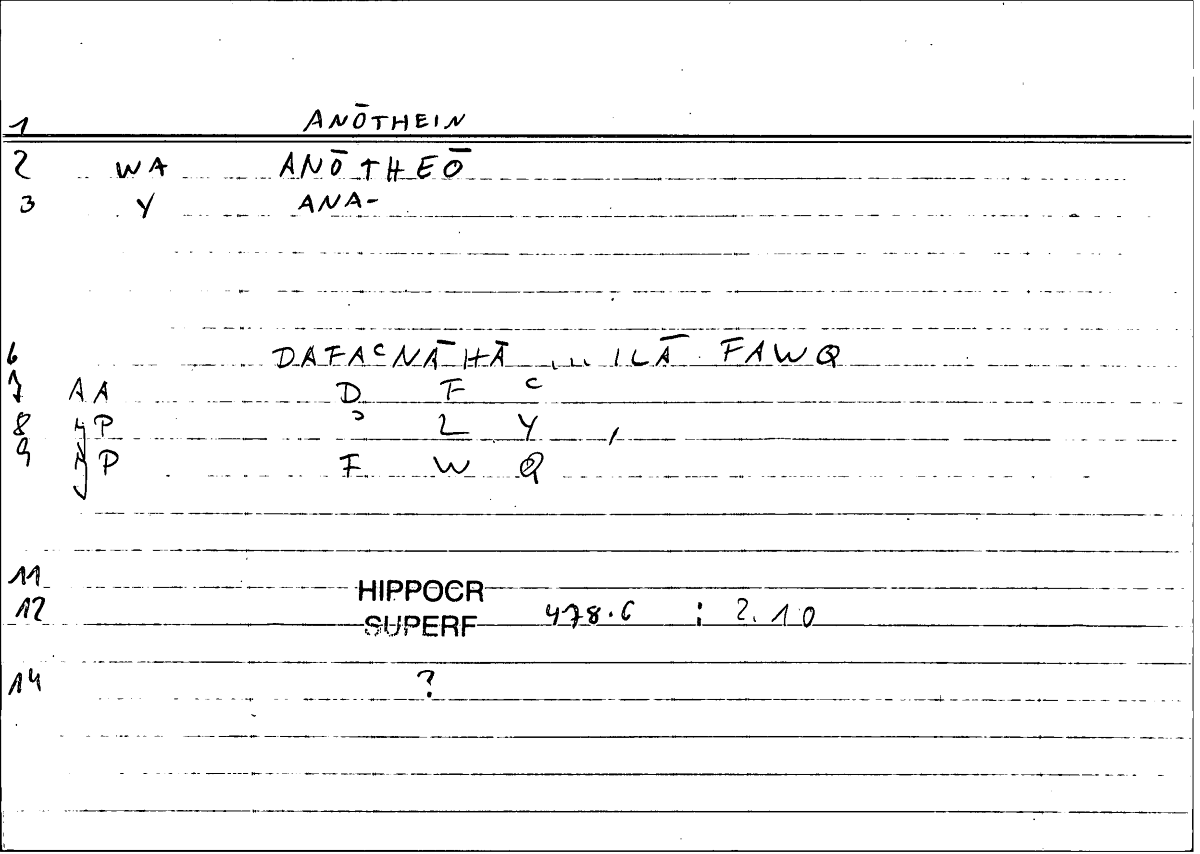 1 ANŌTHEIN
2 WA ANŌTHEŌ
3 Y ANA-
6 DAFACNĀHĀ ... ILĀ FAWQ
7 AA D F C
8 P ɔ L Y ,
9 P F W Q
11 HIPPOCR
12 SUPERF 478.6 : 2.10
14 ?